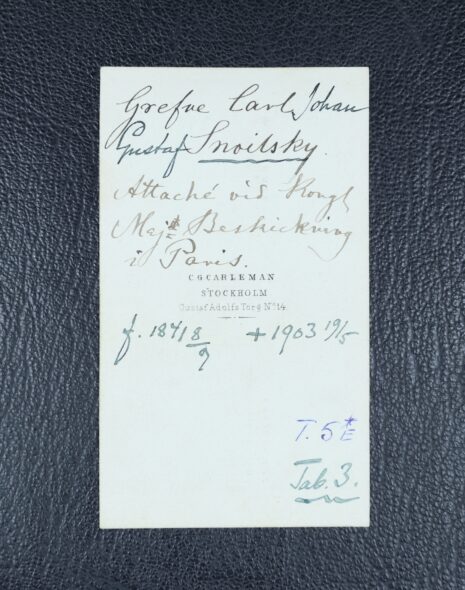 Grefve Carl Johan
Gustaf Snoilsky.
Attaché vid Kongl
Maj:ts Beskickning
i Paris.
C.G.CARLEMAN
STOCKHOLM
Gustaf Adolfs Torg No 14
f. 1841 8/9 + 1903 19/5
T. 5 E*
Tab. 3.